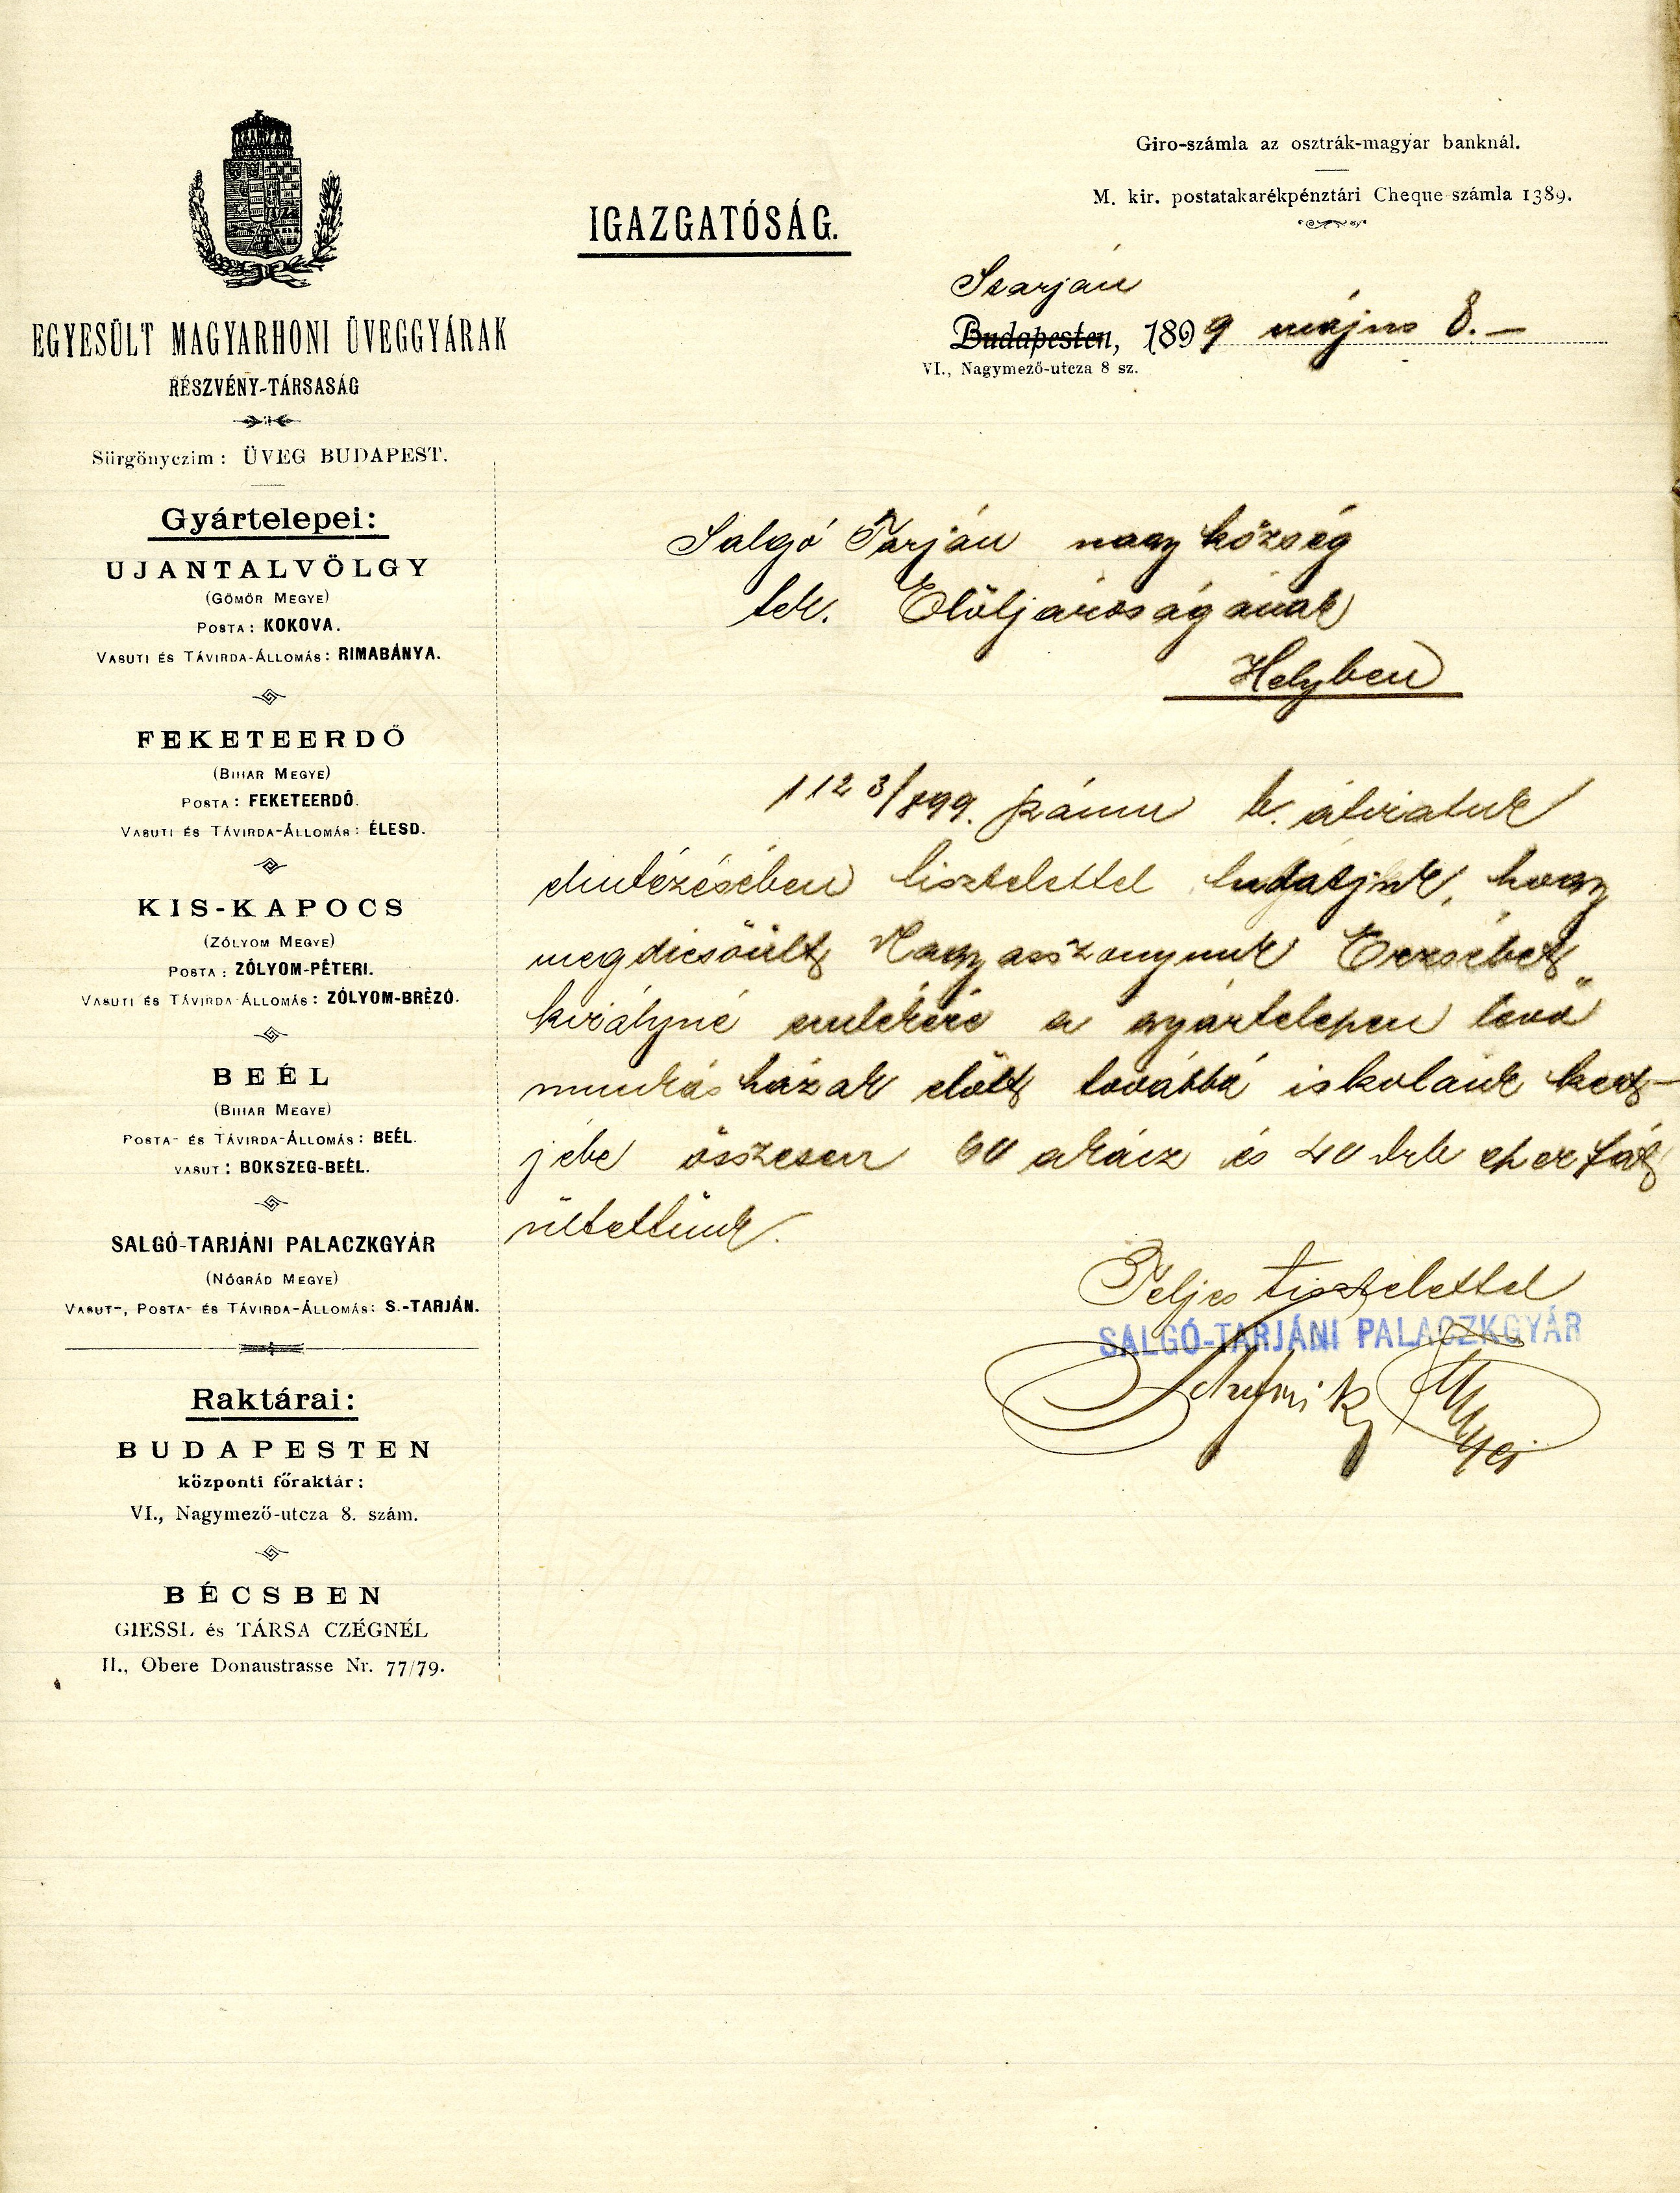 EGYESÜLT MAGYARHONI ÜVEGGYÁRAK
RÉSZVÉNY-TÁRSASÁG
Sürgönyczim: ÜVEG BUDAPEST.
Gyártelepei:
UJANTALVÖLGY
(GÖMÖR MEGYE)
POSTA: KOKOVA.
VASUTI ÉS TÁVIRDA-ÁLLOMÁS: RIMABÁNYA.
FEKETEERDŐ
(BIHAR MEGYE)
POSTA: FEKETEERDŐ.
VASUTI ÉS TÁVIRDA-ÁLLOMÁS: ÉLESD.
KIS-KAPOCS
(ZÓLYOM MEGYE)
POSTA: ZÓLYOM-PÉTERI.
VASUTI ÉS TÁVIRDA-ÁLLOMÁS: ZÓLYOM-BRÉZÓ.
BEÉL
(BIHAR MEGYE)
POSTA- ÉS TÁVIRDA-ÁLLOMÁS: BEÉL.
VASUT: BOKSZEG-BEÉL.
SALGÓ-TARJÁNI PALACZKGYÁR
(NÓGRÁD MEGYE)
VASUT-, POSTA- ÉS TÁVIRDA-ÁLLOMÁS: S.-TARJÁN.
Raktárai:
BUDAPESTEN
központi főraktár:
VI., Nagymező-utcza 8. szám.
BÉCSBEN
GIESSL és TÁRSA CZÉGNÉL
II., Obere Donaustrasse Nr. 77/79.
IGAZGATÓSÁG.
Giro-számla az osztrák-magyar banknál.
M. kir. postatakarékpénztári Cheque számla 1389.
Starján
Budapesten, 1899 május 8.—
VI., Nagymező-utcza 8 sz.
Salgó Tarján nagy község
tek. Elöljáróságának
Helyben
1123/899. számu b. átiratuk
elintézésében tisztelettel tudatjuk, hogy
megdicsöült Nagyasszonyunk Erzsébet
királyné emlékére a gyártelepen levő
munkás házak előtt továbbá iskolánk kert-
jébe összesen 60 akácz és 40 drb eper fát
ültettünk.
Teljes tisztelettel
SALGÓ-TARJÁNI PALACZKGYÁR